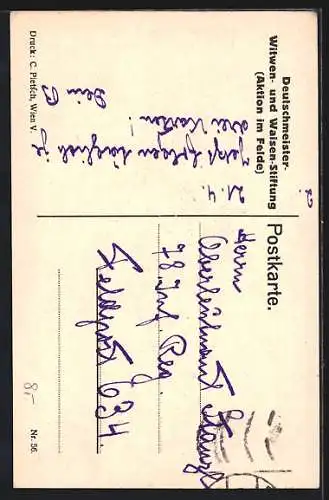 Deutschmeister-
Witwen- und Waisen-Stiftung
(Aktion im Felde)
21. 4.
Jetzt folgen täglich je
drei Karten!
Dein
Druck: C. Pietsch, Wien V.
Postkarte.
Herrn
Oberleutnant
78 Inf. Reg.
Feldpost 634.
8,-
Nr. 56.